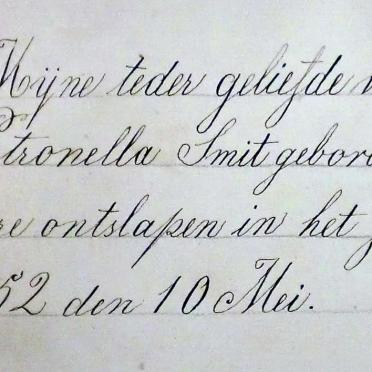 Mijne teder geliefde
tronella Smit gebor
re ontslapen in het
52 den 10 Mei.